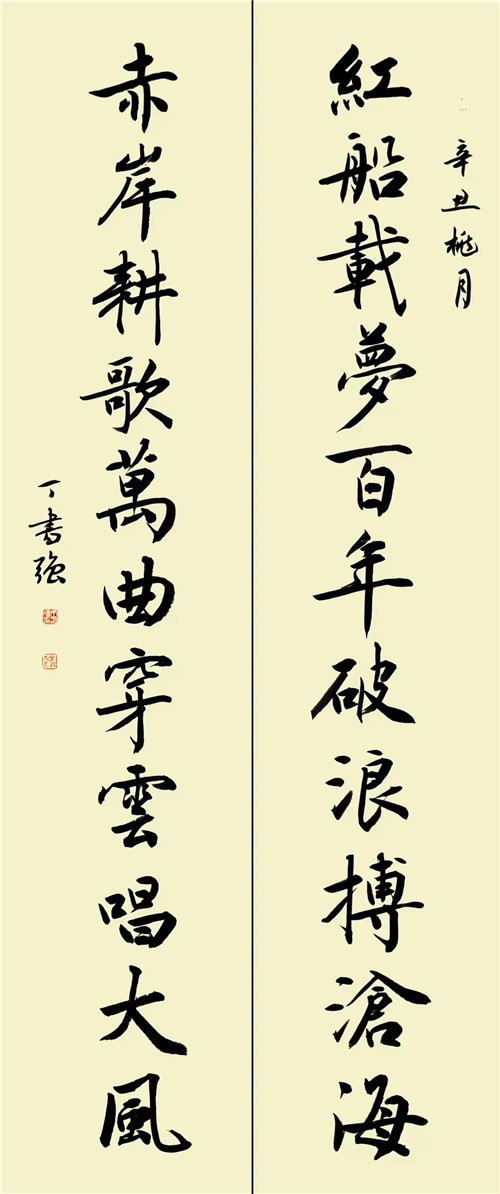 辛丑桃月
紅船載夢百年破浪搏滄海
赤岸耕歌萬曲穿雲唱大風
丁書强